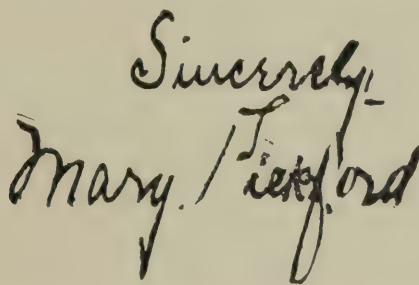 Sincerely-
Mary Pickford